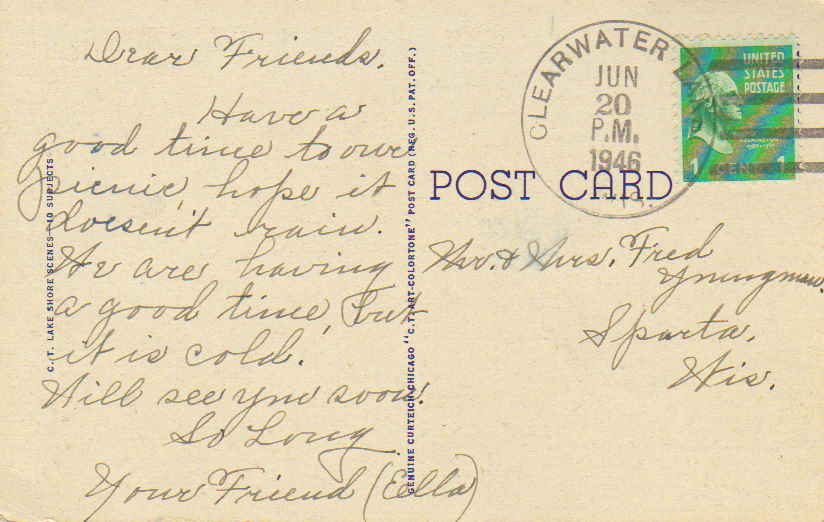 Dear Friends.
Have a
good time to our
picnic, hope it
doesen't rain.
We are having
a good time, but
it is cold.
Will see you soon.
So Long
Your Friend (Eella)
C. T. LAKE SHORE SCENES—10 SUBJECTS
GENUINE CURTEICH-CHICAGO "C. T. ART-COLORTONE" POST CARD (REG. U. S. PAT. OFF.)
POST CARD
CLEARWATER
JUN
20
P.M.
1946
WIS.
UNITED
STATES
POSTAGE
1 1
Mr. & Mrs. Fred
Youngman.
Sparta,
Wis.